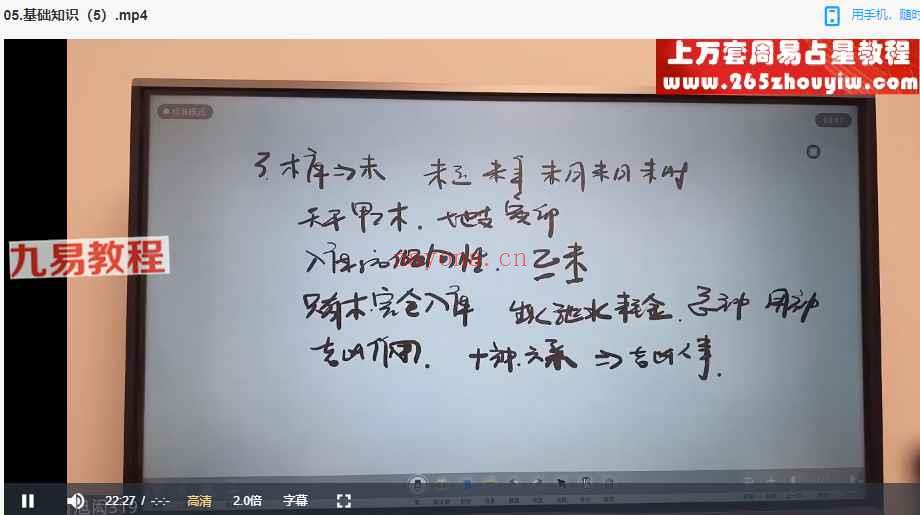 05.基础知识（5）.mp4
用手机，随时
上万套周易占星教程
www.265zhouyiw.com
标准模式
3.木库⇒未 未运 未年 未月未日未时
天干甲乙木.地支寅卯
九易教程
入库 性. 乙未
只有木完全入库 生火泄水耗金. 忌神 用神
吉凶作用. 十神.六亲 ⇒吉凶人事.
22:27 / -:-:- 高清 2.0倍 字幕